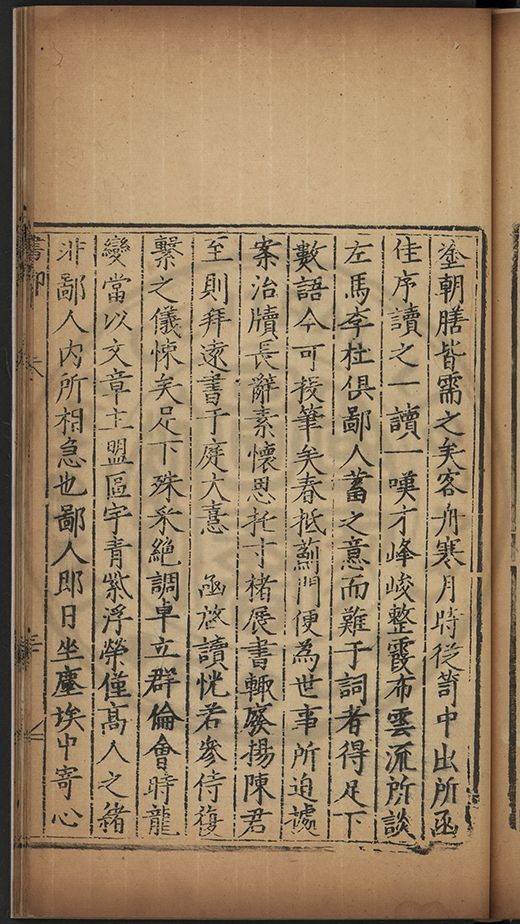 朝膳皆需之矣客舟寒月時從笥中出所函
佳序讀之一讀一嘆才峰峻整霞布雲流所談
左馬李杜俱鄙人蓄之意而難于詞者得足下
數語今可投筆矣春抵薊門便為世事所迫遽
案治牘長辭素懷思托寸楮展書輒廢揚陳君
至則拜遠書于庭大憙 函啓讀恍若參侍復
繫之儀悚矣足下殊釆絕調卓立群倫會時龍
變當以文章主盟區宇青紫浮榮僅高人之緒
鄙人內所相急也鄙人即日坐塵埃中寄心